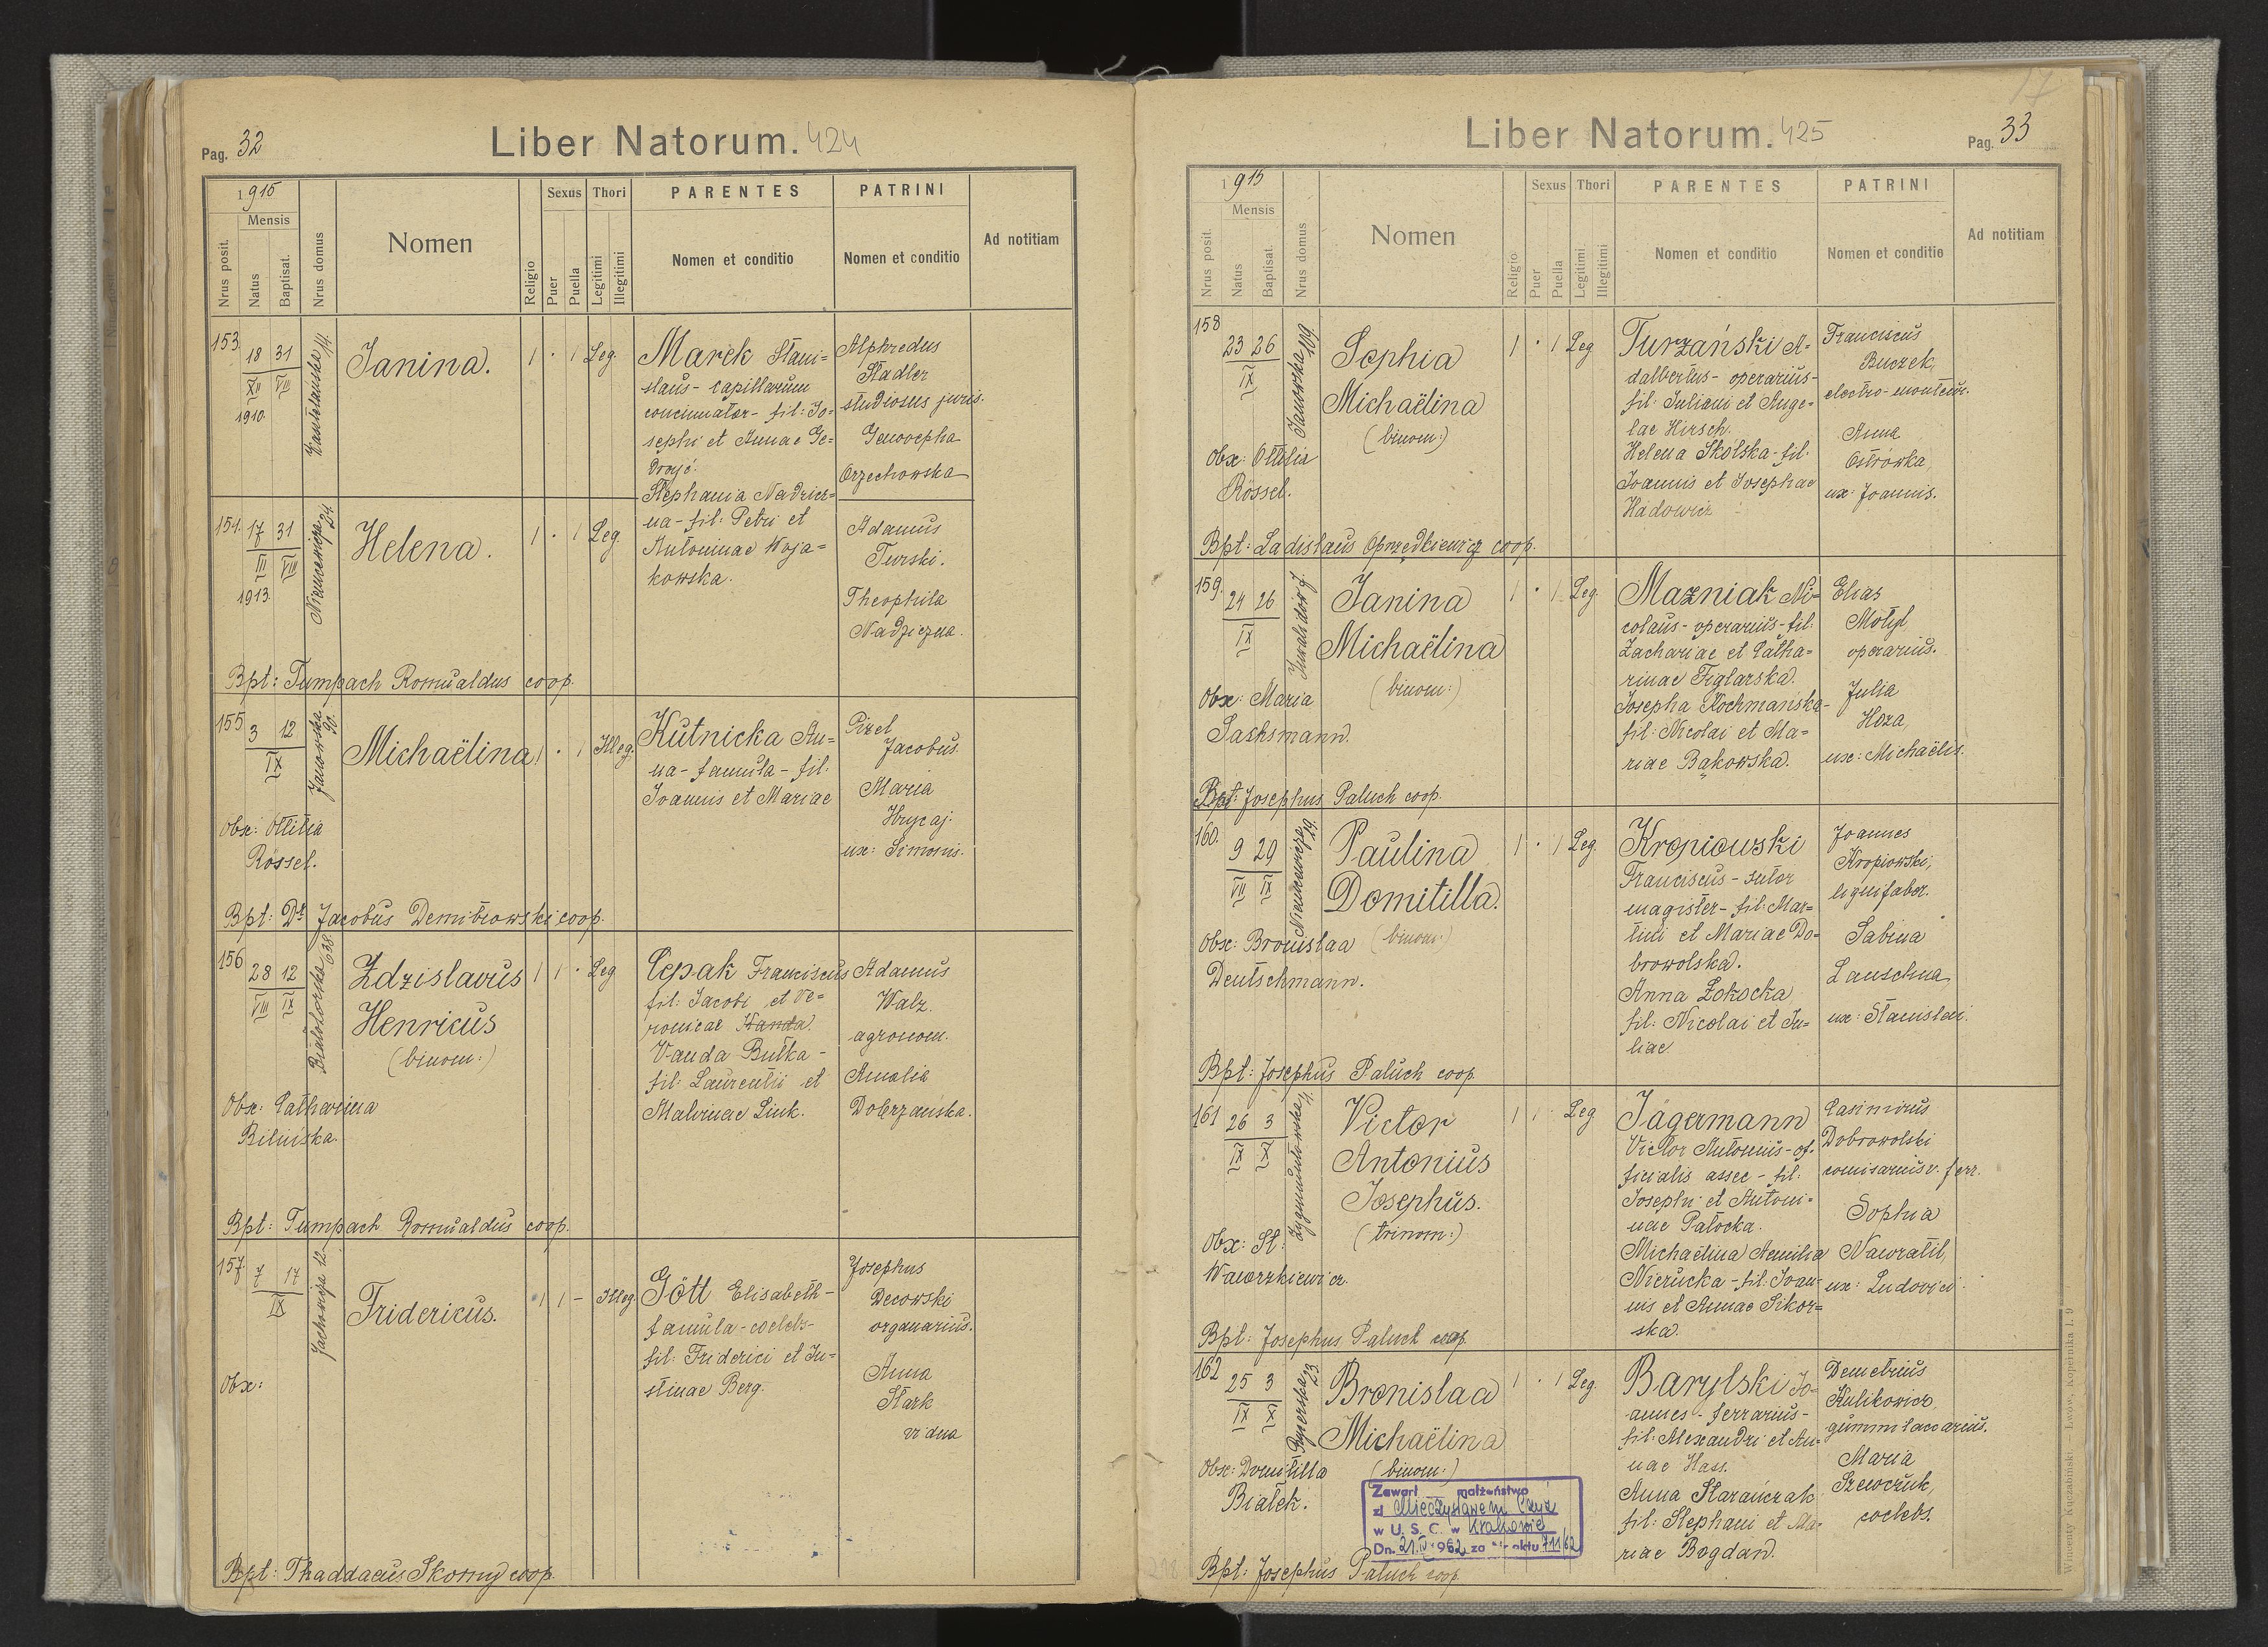 Pag. 32
Liber Natorum. 424
1915
Mensis
Nrus posit.
Natus
Baptisat.
Nrus domus
Nomen
Religio
Sexus
Puer
Puella
Thori
Legitimi
Illegitimi
PARENTES
Nomen et conditio
PATRINI
Nomen et conditio
Ad notitiam
153.
18 31
XII VIII
1910.
14.
Janina.
1 · 1 Leg.
Marek Stani=
slaus - capillorum
concinnator - fil: Jo=
sephi et Annae Ge=
Stephania Nadzicz=
na - fil: Petri et
Antoninae Woja=
kowska.
Alphredus
Stadler
studiosus juris.
Genovepha
Orzechowska
154.
17 31
III VIII
1913.
Niemcewicza 24.
Helena.
1 · 1 Leg.
Adamus
Turski.
Theophila
Nadziczna.
Bpt: Tumpach Romualdus coop.
155
3 12
IX
Janowska 90.
Michaëlina
1 · 1 Illeg.
Kutnicka An=
na - famula - fil:
Joannis et Mariae
Pizel
Jacobus
Maria
Hrycaj
ux: Simonis.
Obx: Ottilia
Rössel.
Bpt: Dr Jacobus Demitrowski coop.
156
28 12
VIII IX
38.
Zdzislavus
Henricus
(binom:)
1 1 · Leg
Cepak Franciscus
fil: Jacobi et Ve=
ronicae Wanda.
Vanda Butka -
fil: Laurentii et
Malvinae Link.
Adamus
Walz.
agronom.
Amalia
Dobrzanska.
Obx: Catharina
Bilinska.
Bpt: Tumpach Romualdus coop.
157
7 17
IX
Jachowicza 12.
Fridericus.
1 1 - Illeg.
Gött Elisabeth -
famula - coelebs -
fil: Friderici et Ju=
stinae Berg.
Josephus
Decowski
organarius.
Anna
Stark
vidua
Obx:
Bpt: Thaddaeus Skorny coop.
17
Liber Natorum. 425
Pag. 33
1915
Mensis
Nrus posit.
Natus
Baptisat.
Nrus domus
Nomen
Religio
Sexus
Puer
Puella
Thori
Legitimi
Illegitimi
PARENTES
Nomen et conditio
PATRINI
Nomen et conditio
Ad notitiam
158
23 26
IX
Janowska 109.
Sophia
Michaëlina
(binom:)
1 · 1 Leg
Turzański A=
dalbertus - operarius -
fil: Juliani et Ange=
lae Hirsch.
Helena Skolska - fil:
Joannis et Josephae
Hadowicz
Franciscus
Buczek,
electro-monteur.
Anna
Ostrówka,
ux: Joannis.
Obx: Ottilia
Rössel.
Bpt: Ladislaus Oprzędkiewicz coop.
159.
24 26
IX
Janina
Michaëlina
(binom:)
1 · 1 Leg.
Mazniak Ni=
colaus - operarius - fil:
Zachariae et Catha=
rinae Figlarska.
Josepha Kochmańska -
fil: Nicolai et Ma=
riae Bąkowska.
Elias
Motyl,
operarius.
Julia
Hoza,
ux: Michaëlis.
Obx: Maria
Sachsmann.
Bpt: Josephus Paluch coop.
160.
9 29
VII IX
Niemcewicza 19.
Paulina
Domitilla.
(binom:)
1 · 1 Leg.
Kropiowski
Franciscus - sutor
magister - fil: Mar=
tini et Mariae Do=
browolska.
Anna Zokocka
fil: Nicolai et Ju=
liae.
Joannes
Kropiowski,
lignifaber.
Sabina
Lauschna,
ux: Stanislai.
Obx: Bronislaa
Deutschmann.
Bpt: Josephus Paluch coop.
161
26 3
IX XI
Zygmuntowska 4.
Victor
Antonius
Josephus.
(trinom:)
1 1 · Leg
Jägermann
Victor Antonius - of=
ficialis assec - fil:
Josephi et Antoni=
nae Patocka.
Michaëlina Aemilia
Nierucka - fil: Joan=
nis et Annae Sikor=
ska.
Casimirus
Dobrowolski
comisarius v. ferr.
Sophia
Nawratil,
ux: Ludovici
Obx: St.
Wawrzkiewicz.
Bpt: Josephus Paluch coop.
162
25 3
IX XI
23
Bronislaa
Michaëlina
(binom:)
1 · 1 Leg.
Barylski Jo=
annes - ferrarius -
fil: Alexandri et An=
nae Hass.
Anna Starańczak
fil: Stephani et Ma=
riae Bogdan.
Demetrius
Kulikowicz,
Maria
Szewczuk,
coelebs.
Obx: Domitilla
Białek.
Zawarł małżeństwo
z Mieczysławem Czyż
w U. S. C. w Krakowie
Dn. 21.IV 1962 za Nr aktu 711/62
Bpt: Josephus Paluch coop.
Wincenty Kuczabiński - Lwów, Kopernika l. 9